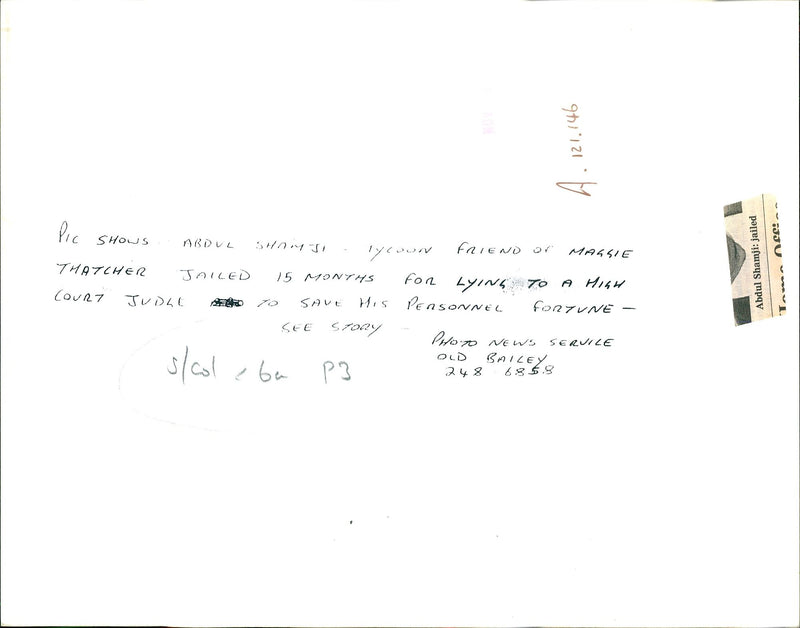 A. 121.146
PIC SHOWS ABDUL SHAMJI - TYCOON FRIEND OF MAGGIE
THATCHER JAILED 15 MONTHS FOR LYING TO A HIGH
COURT JUDGE TO SAVE HIS PERSONNEL FORTUNE -
SEE STORY -
PHOTO NEWS SERVICE
OLD BAILEY
248 6858
S/Col P3
Abdul Shamji: jailed
Home Office